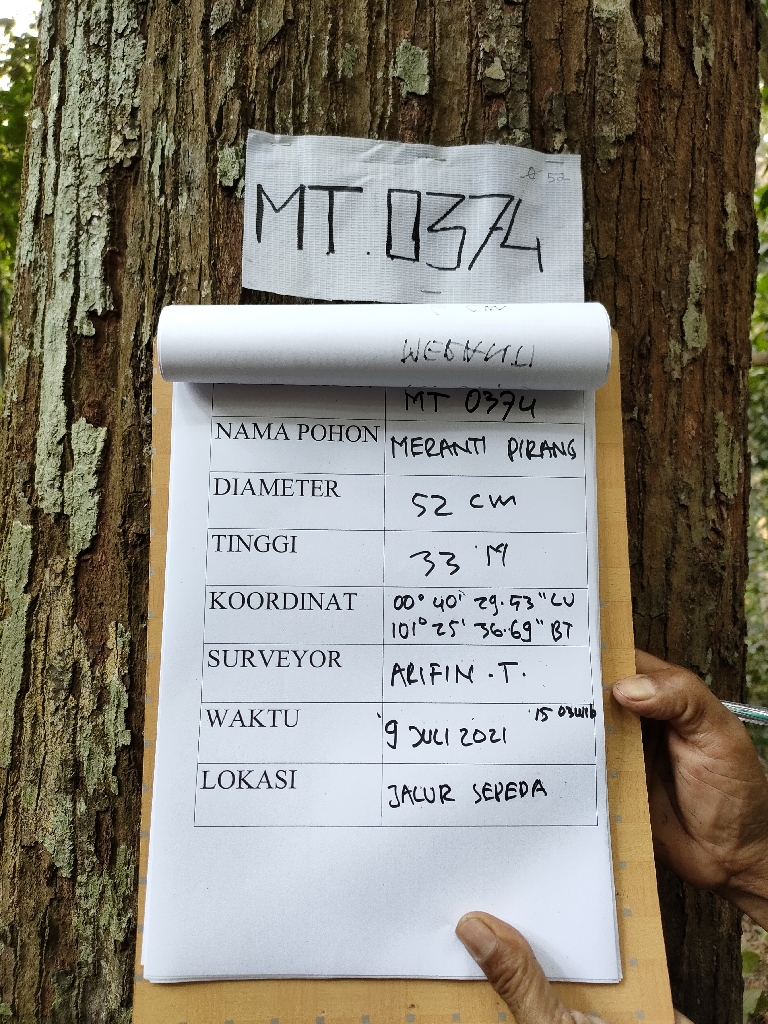 Ø 52
MT. 0374
MT 0374
NAMA POHON MERANTI PIRANG
DIAMETER 52 CM
TINGGI 33 M
KOORDINAT 00° 40' 29.53" LU
101° 25' 36.69" BT
SURVEYOR ARIFIN .T.
WAKTU 9 JULI 2021 15 03 WIB
LOKASI JALUR SEPEDA